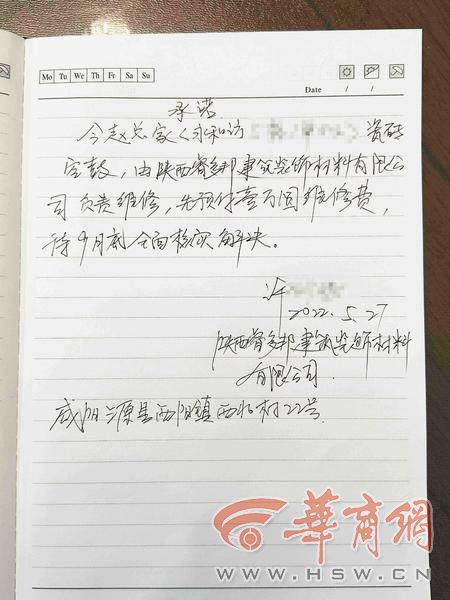 Mo Tu We Th Fr Sa Su
Date / /
承诺
今赵总家(司和访 瓷砖
空鼓，由陕西睿多邦建筑装饰材料有限公
司负责维修，先预付壹万圆维修费，
待9月底全面核实解决。
许
2022.5.27
陕西睿多邦建筑装饰材料
有限公司
咸阳三源县西阳鎮西 村22号
華商網
WWW.HSW.CN